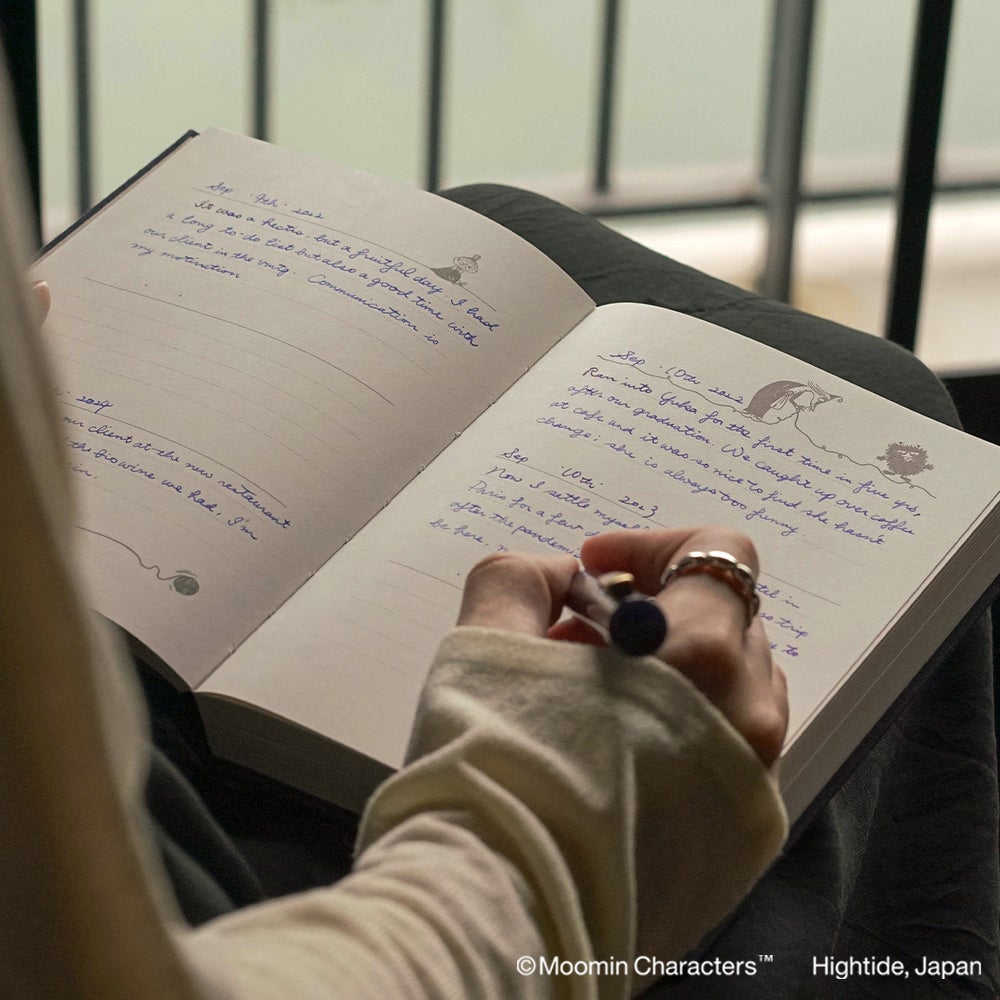 Sep . 9th . 2022
It was a hectic but a fruitful day. I had
a long to-do list but also a good time with
our client in the mtg. Communication is
my motivation.
. 2024
our client at the new restaurant
the bio wine we had, I'm
in.
Sep . 10th 2022
Ran into Yuka for the first time in five yrs,
after our graduation. We caught up over coffee
at cafe and it was so nice to find she hasn't
change; she is always too funny.
Sep . 10th . 2023
Now I settle myself
Paris for a few
after the pandemic
be here,
tel in
so trip
to
©Moomin Characters™ Hightide, Japan